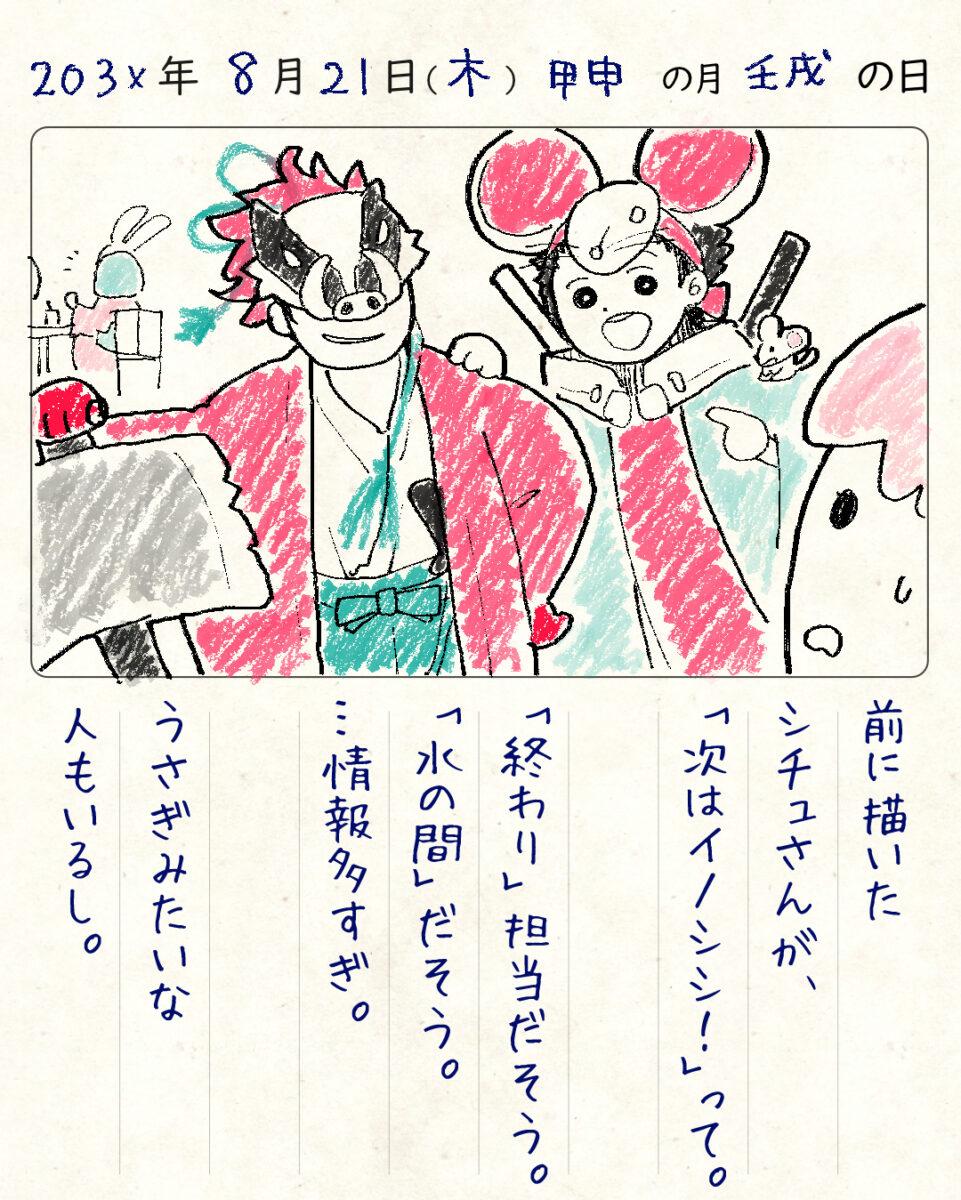 203x年 8月21日(木) 甲申 の月 壬戌 の日
前に描いた
シチュさんが、
「次はイノシシ!」って。
「終わり」担当だそう。
「水の間」だそう。
…情報多すぎ。
うさぎみたいな
人もいるし。